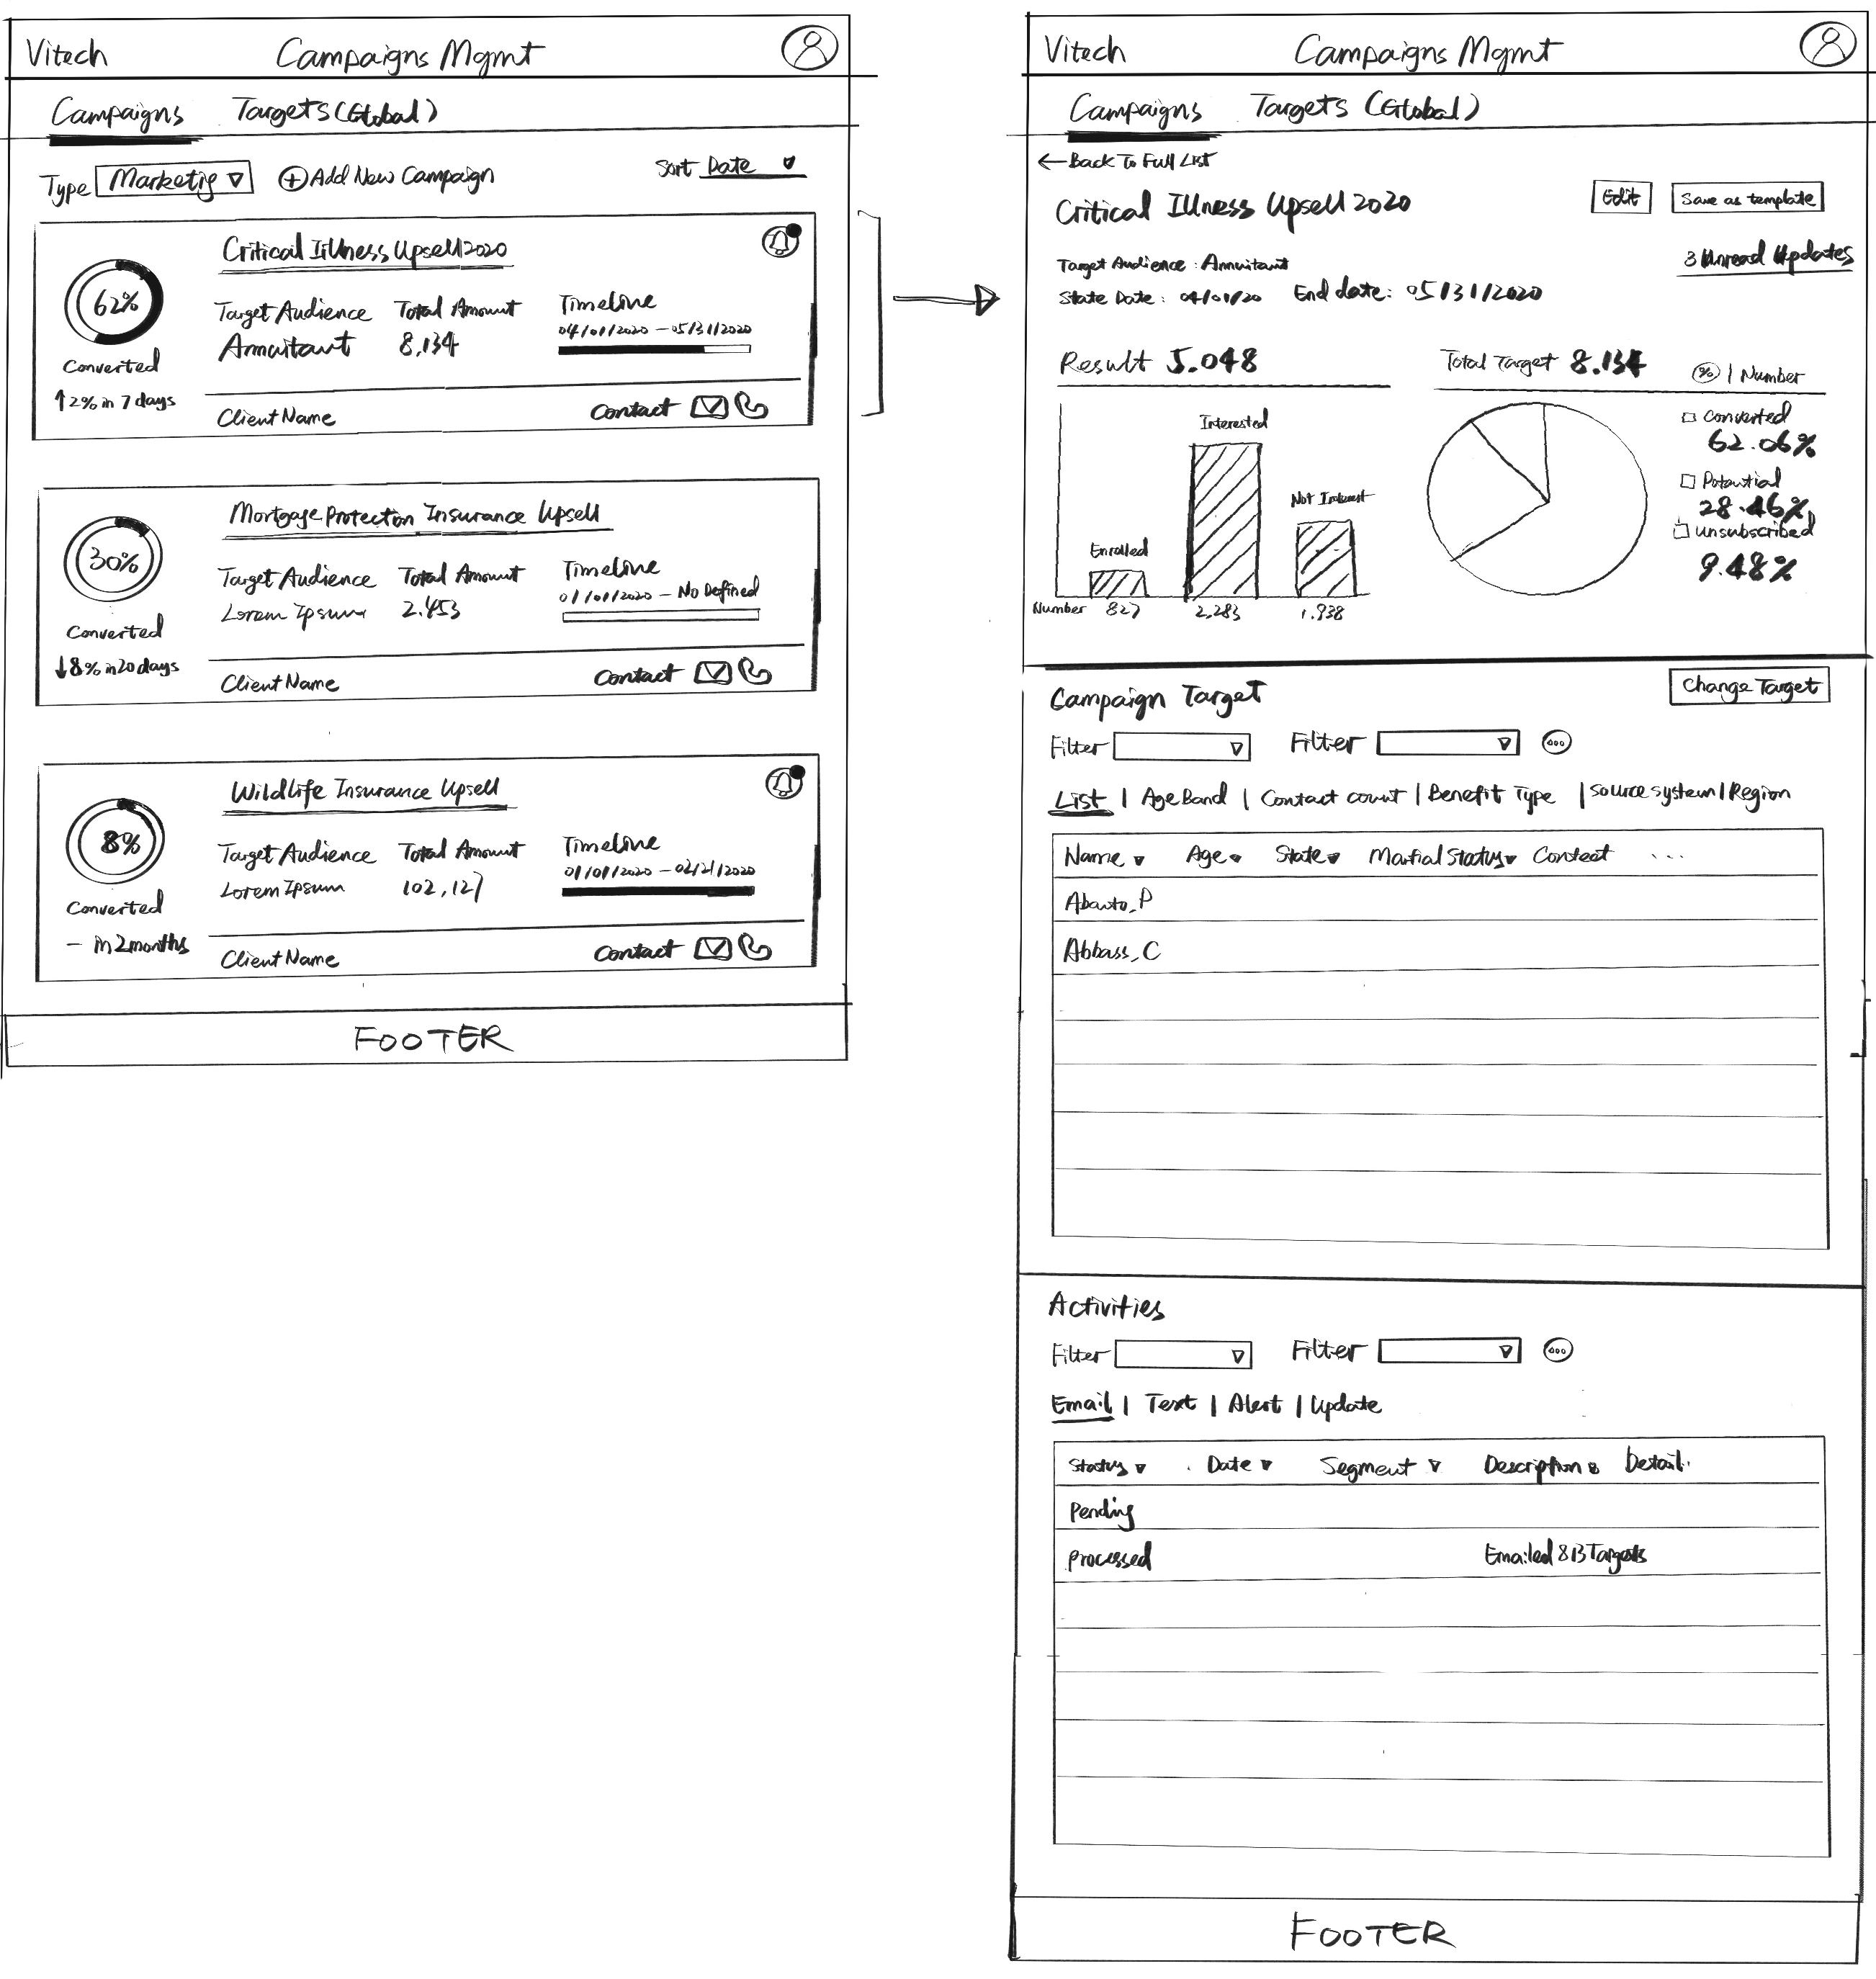 Vitech
Campaigns Mgmt
Campaigns Targets (Global)
Type Marketig
Add New Campaign
Sort Date
Critical Illness Upsell 2020
62%
Converted
↑2% in 7 days
Target Audience Total Amount Timeline
Annuitant 8,134 04/01/2020 - 05/31/2020
Client Name
Contact
Mortgage Protection Insurance Upsell
30%
Converted
↓8% in 20 days
Target Audience Total Amount Timeline
Lorem Ipsum 2.453 01/01/2020 - No Defined
Client Name
Contact
Wildlife Insurance Upsell
8%
Converted
- in 2 months
Target Audience Total Amount Timeline
Lorem Ipsum 102,127 01/01/2020 - 02/21/2020
Client Name
Contact
FOOTER
Vitech
Campaigns Mgmt
Campaigns Targets (Global)
← Back To Full List
Critical Illness Upsell 2020
Edit
Save as template
3 Unread Updates
Target Audience: Annuitant
State Date: 04/01/20 End date: 05/31/2020
Result 5.048
Total Target 8.134
% | Number
Enrolled
Interested
Not Interest
Number 827 2,283 1.938
Converted
62.06%
Potential
28.46%
unsubscribed
9.48%
Campaign Target
Change Target
Filter
Filter
List | Age Band | Contact count | Benefit Type | Source system | Region
Name Age State Marital Status Contact ...
Abbass, C
Activities
Filter
Filter
Email | Text | Alert | Update
Status Date Segment Description Detail.
Pending
Processed Emailed 813 Targets
FOOTER